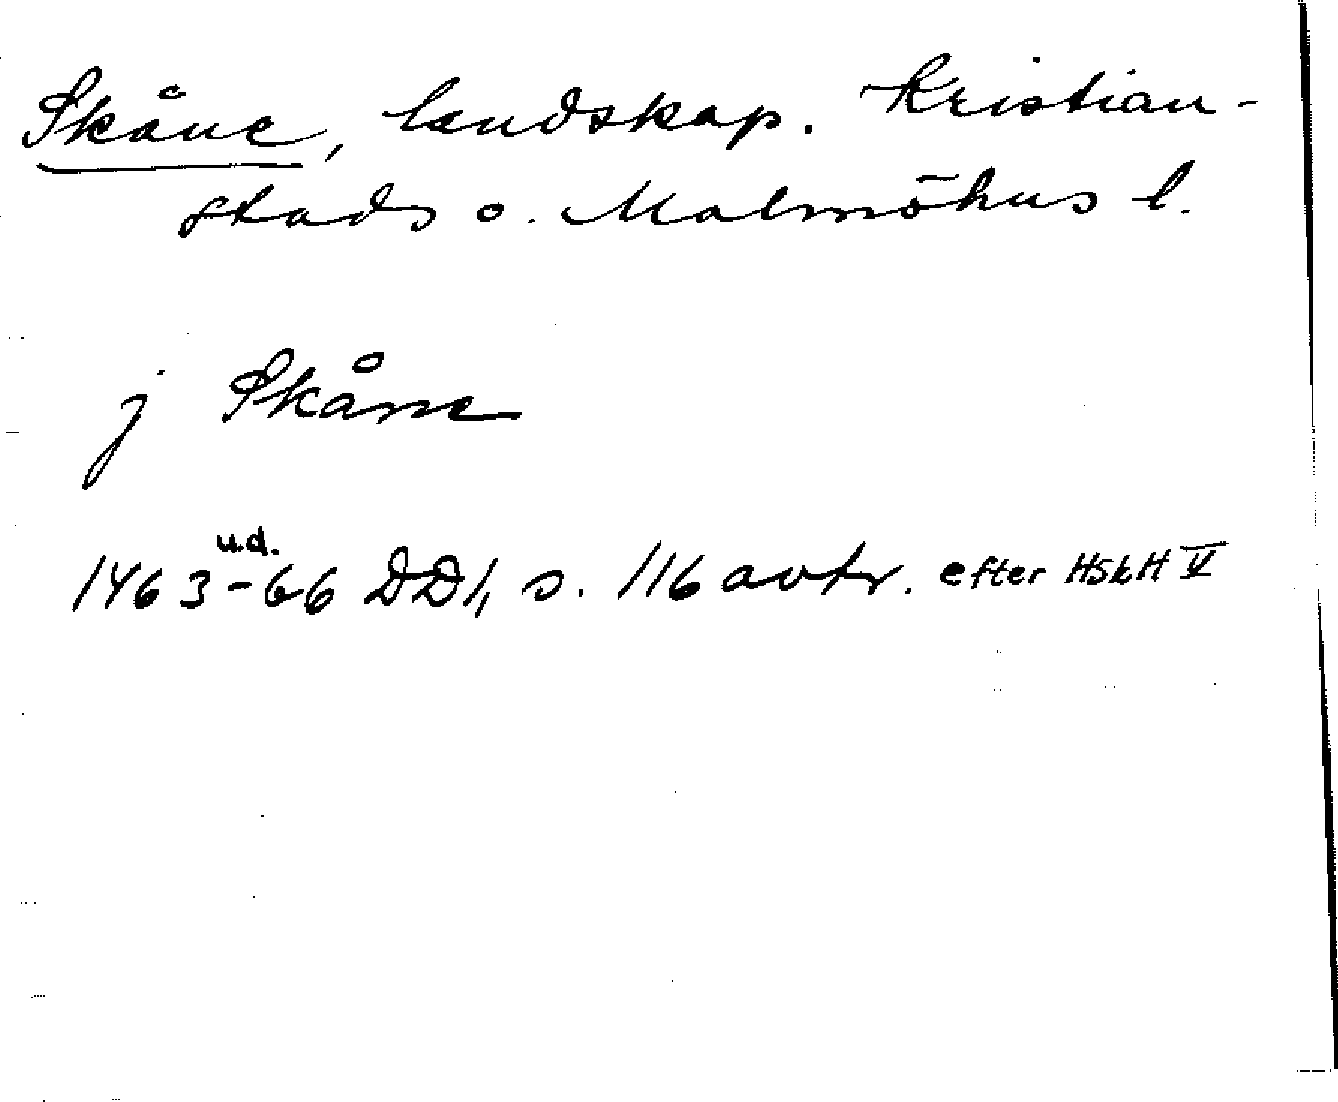 Skåne, landskap. Kristian-
stads o. Malmöhus l.
j Skåne
1463-66 u.d. DD1, s. 116 avtr. efter HSkH V